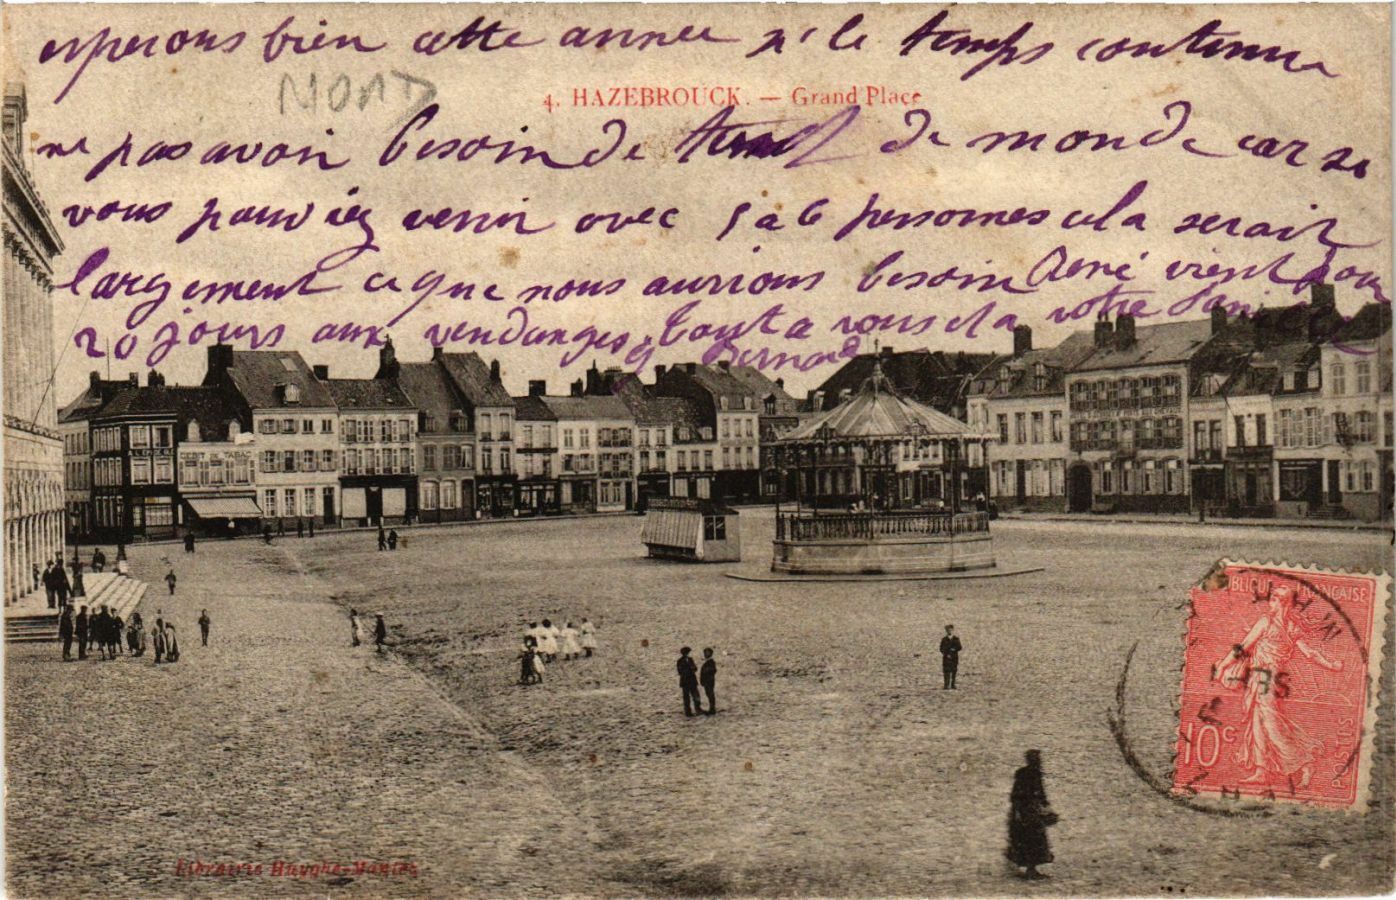 esperons bien cette annee si le temps continue
NORD
4. HAZEBROUCK. — Grand Place
ne pas avoir besoin de tant de monde car si
vous pouviez venir avec 5 a 6 personnes cela serait
largement ce que nous aurions besoin René vient pour
20 jours aux vendanges tout a vous et a votre
Bernard
DEBIT DE TABAC
RÉPUBLIQUE FRANÇAISE
10c
POSTES
Librairie Huyghe-Maniez